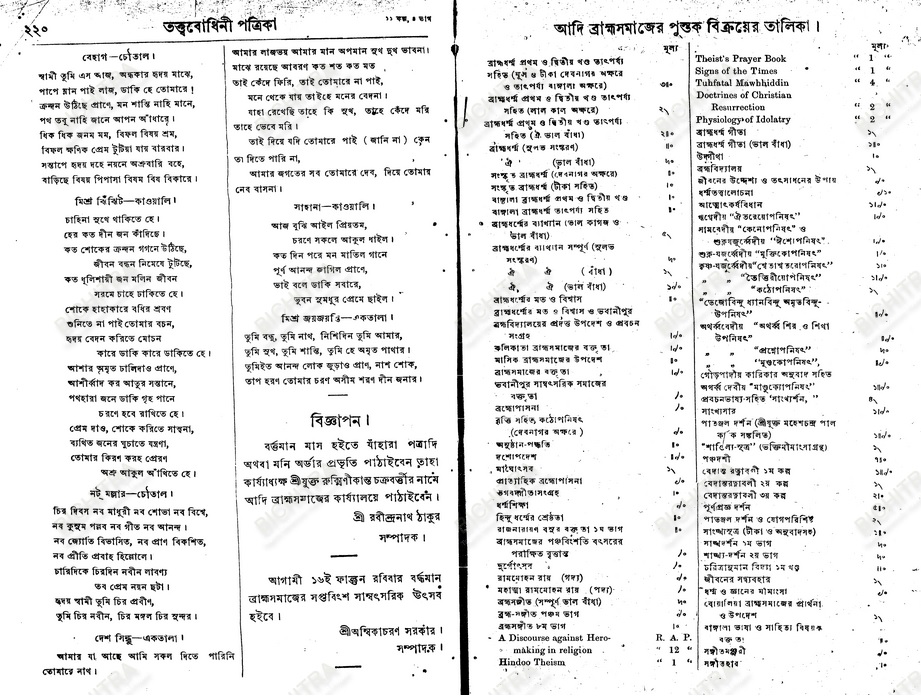 ২২০
তত্ত্ববোধিনী পত্রিকা
১১ কল্প, ৪ ভাগ
বেহাগ—চৌতাল।
স্বামী তুমি এস আজ, অন্ধকার হৃদয় মাঝে,
পাপে ম্লান পাই লাজ, ডাকি হে তোমারে!
ক্রন্দন উঠিছে প্রাণে, মন শান্তি নাহি মানে,
পথ তবু নাহি জানে আপন আঁধারে।
ধিক ধিক জনম মম, বিফল বিষয় শ্রম,
বিফল ক্ষণিক প্রেম টুটিয়া যায় বারবার।
সন্তাপে হৃদয় দহে নয়নে অশ্রুবারি বহে,
বাড়িছে বিষয় পিপাসা বিষম বিষ বিকারে।
মিশ্র ঝিঁঝিট—কাওয়ালি।
চাহিনা সুখে থাকিতে হে।
হের কত দীন জন কাঁদিছে।
কত শোকের ক্রন্দন গগনে উঠিছে,
জীবন বন্ধন নিমেষে টুটিছে,
কত ধূলিশায়ী জন মলিন জীবন
সরমে চাহে ঢাকিতে হে।
শোকে হাহাকারে বধির শ্রবণ
শুনিতে না পাই তোমার বচন,
হৃদয় বেদন করিতে মোচন
কারে ডাকি কারে ডাকিতে হে।
আশার অমৃত ঢালিদাও প্রাণে,
আশীর্ব্বাদ কর আতুর সন্তানে,
পথহারা জনে ডাকি গৃহ পানে
চরণে হবে রাখিতে হে।
প্রেম দাও, শোকে করিতে সান্ত্বনা,
ব্যথিত জনের ঘুচাতে যন্ত্রণা,
তোমার কিরণ করহ প্রেরণ
অশ্রু আকুল আঁখিতে হে।
নট্ মল্লার—চৌতাল।
চির দিবস নব মাধুরী নব শোভা নব বিশ্বে,
নব কুসুম পল্লব নব গীত নব আনন্দ।
নব জ্যোতি বিভাসিত, নব প্রাণ বিকশিত,
নব প্রীতি প্রবাহ হিল্লোলে।
চারিদিকে চিরদিন নবীন লাবণ্য
তব প্রেম নয়ন ছটা।
হৃদয় স্বামী তুমি চির প্রবীণ,
তুমি চির নবীন, চির মঙ্গল চির সুন্দর।
দেশ সিন্ধু—একতালা।
আমার যা আছে আমি সকল দিতে পারিনি
তোমারে নাথ।
আমার লাজভয় আমার মান অপমান সুখ দুখ ভাবনা।
মাঝে রয়েছে আবরণ কত শত কত মত
তাই কেঁদে ফিরি, তাই তোমারে না পাই,
মনে থেকে যায় তাইহে মনের বেদনা।
যাহা রেখেছি তাহে কি সুখ, তাহে কেঁদে মরি
তাহে ভেবে মরি।
তাই দিয়ে যদি তোমারে পাই (জানি না) কেন
তা দিতে পারি না,
আমার জগতের সব তোমারে দেব, দিয়ে তোমায়
নেব বাসনা।
সাহানা—কাওয়ালি।
আজ বুঝি আইল প্রিয়তম,
চরণে সকলে আকুল ধাইল।
কত দিন পরে মন মাতিল গানে
পূর্ণ আনন্দ জাগিল প্রাণে,
ভাই বলে ডাকি সবারে,
ভুবন সুমধুর প্রেমে ছাইল।
মিশ্র জয়জয়ন্তি—একতালা।
তুমি বন্ধু, তুমি নাথ, নিশিদিন তুমি আমার,
তুমি সুখ, তুমি শান্তি, তুমি হে অমৃত পাথার।
তুমিইত আনন্দ লোক জুড়াও প্রাণ, নাশ শোক,
তাপ হরণ তোমার চরণ অসীম শরণ দীন জনার।
বিজ্ঞাপন।
বর্ত্তমান মাস হইতে যাঁহারা পত্রাদি
অথবা মনি অর্ডার প্রভৃতি পাঠাইবেন তাহা
কার্য্যাধ্যক্ষ শ্রীযুক্ত রুক্মিণীকান্ত চক্রবর্ত্তীর নামে
আদি ব্রাহ্মসমাজের কার্য্যালয়ে পাঠাইবেন।
শ্রী রবীন্দ্রনাথ ঠাকুর
সম্পাদক।
আগামী ১৬ই ফাল্গুন রবিবার বর্দ্ধমান
ব্রাহ্মসমাজের সপ্তবিংশ সাম্বৎসরিক উৎসব
হইবে।
শ্রীঅম্বিকাচরণ সরকার।
সম্পাদক।
আদি ব্রাহ্মসমাজের পুস্তক বিক্রয়ের তালিকা।
মূল্য
ব্রাহ্মধর্ম্ম প্রথম ও দ্বিতীয় খণ্ড তাৎপর্য্য
সহিত (মূল ও টীকা দেবনাগর অক্ষরে
ও তাৎপর্য্য বাঙ্গালা অক্ষরে)
ব্রাহ্মধর্ম্ম প্রথম ও দ্বিতীয় খণ্ড তাৎপর্য্য
সহিত (লাল কাল অক্ষরে)
ব্রাহ্মধর্ম্ম প্রথম ও দ্বিতীয় খণ্ড তাৎপর্য্য
সহিত (ঐ ভাল বাঁধা)
ব্রাহ্মধর্ম্ম (সুলভ সংস্করণ)
ঐ (ভাল বাঁধা)
সংস্কৃত ব্রাহ্মধর্ম্ম (দেবনাগর অক্ষরে)
সংস্কৃত ব্রাহ্মধর্ম্ম (টীকা সহিত)
বাঙ্গালা ব্রাহ্মধর্ম্ম প্রথম ও দ্বিতীয় খণ্ড
বাঙ্গালা ব্রাহ্মধর্ম্ম তাৎপর্য্য সহিত
ব্রাহ্মধর্ম্মের ব্যাখ্যান (ভাল কাগজ ও
ভাল বাঁধা)
ব্রাহ্মধর্ম্মের ব্যাখ্যান সম্পূর্ণ (সুলভ
সংস্করণ)
ঐ ঐ (বাঁধা)
ঐ ঐ (ভাল বাঁধা)
ব্রাহ্মধর্ম্মের মত ও বিশ্বাস
ব্রাহ্মধর্ম্মের মত ও বিশ্বাস ও ভবানীপুর
ব্রহ্মবিদ্যালয়ের প্রদত্ত উপদেশ ও প্রবচন
সংগ্রহ
কলিকাতা ব্রাহ্মসমাজের বক্তৃতা
মাসিক ব্রাহ্মসমাজের উপদেশ
ব্রাহ্মসমাজের বক্তৃতা
ভবানীপুর সাম্বৎসরিক সমাজের
বক্তৃতা
ব্রহ্মোপাসনা
বৃত্তি সহিত কঠোপনিষৎ
(দেবনাগর অক্ষরে)
অনুষ্ঠান-পদ্ধতি
দশোপদেশ
মাঘোৎসব
প্রাত্যহিক ব্রহ্মোপাসনা
ভগবদ্গীতাসংগ্রহ
ধর্ম্মশিক্ষা
হিন্দু ধর্ম্মের শ্রেষ্ঠতা
রাজনারায়ণ বসুর বক্তৃতা ১ম ভাগ
ব্রাহ্মসমাজের পঞ্চবিংশতি বৎসরের
পরীক্ষিত বৃত্তান্ত
দুর্গোৎসব
রামমোহন রায় (গদ্য)
মহাত্মা রামমোহন রায় (পদ্য)
ব্রহ্মসঙ্গীত (সম্পূর্ণ ভাল বাঁধা)
ব্রহ্ম-সঙ্গীত পঞ্চম ভাগ
ব্রহ্মসঙ্গীত ৮ম ভাগ
A Discourse against Hero-
making in religion
R. A. P.
" 12 "
Hindoo Theism " 1 "
মূল্য
Theist's Prayer Book " 1 "
Signs of the Times " 1 "
Tuhfatal Mawhhiddin " 4 "
Doctrines of Christian
Resurrection " 2 "
Physiology of Idolatry " 2 "
ব্রাহ্মধর্ম্ম গীতা
ব্রাহ্মধর্ম্ম গীতা (ভাল বাঁধা)
উদ্গীথা
ব্রহ্মবিদ্যালয়
জীবনের উদ্দেশ্য ও তৎসাধনের উপায়
ধর্ম্মতত্ত্বালোচনা
আত্মোৎকর্ষবিধান
ঋগ্বেদীয় "ঐতরেয়োপনিষৎ"
সামবেদীয় "কেনোপনিষৎ" ও
শুক্লযজুর্ব্বেদীয় "ঈশোপনিষৎ"
শুক্ল-যজুর্ব্বেদীয় "মুক্তিকোপনিষৎ"
কৃষ্ণ-যজুর্ব্বেদীয় "শ্বেতাশ্বতরোপনিষৎ"
" " "তৈত্তিরীয়োপনিষৎ"
" " "কঠোপনিষৎ"
"তেজোবিন্দু ধ্যানবিন্দু অমৃতবিন্দু-
উপনিষৎ"
অথর্ব্ববেদীয় "অথর্ব্ব শির ও শিখা
উপনিষৎ"
" " "প্রশ্নোপনিষৎ"
" " "মুণ্ডকোপনিষৎ"
গৌড়পাদীয় কারিকার অনুবাদ সহিত
অথর্ব্ব বেদীয় "মাণ্ডুক্যোপনিষৎ"
প্রবচনভাষ্য-সহিত "সাংখ্যদর্শন,"
সাংখ্যসার
পাতঞ্জল দর্শন (শ্রীযুক্ত মহেশচন্দ্র পাল
কর্ত্তৃক সঙ্কলিত)
"শাণ্ডিল্য-সূত্র" (ভক্তিমীমাংসাগ্রন্থ)
পঞ্চদশী
বেদান্ত রত্নাবলী ১ম কল্প
বেদান্তরত্নাবলী ২য় কল্প
বেদান্তরত্নাবলী ৩য় কল্প
পূর্ণপ্রজ্ঞ দর্শন
পাতঞ্জল দর্শন ও যোগপরিশিষ্ট
সাংখ্যসূত্র (টীকা ও অনুবাদসহ)
সাংখ্যদর্শন ১ম ভাগ
শাঙ্খ্য-দর্শন ২য় ভাগ
চরিত্রানুমান বিদ্যা ১ম খণ্ড
জীবনের সদ্ব্যবহার
ধর্ম্ম ও জ্ঞানের মীমাংসা
বোয়ালিয়া ব্রাহ্মসমাজের প্রার্থনা
ও উপদেশ
বাঙ্গালা ভাষা ও সাহিত্য বিষয়ক
বক্তৃতা
সঙ্গীতমঞ্জরী
সঙ্গীতহার